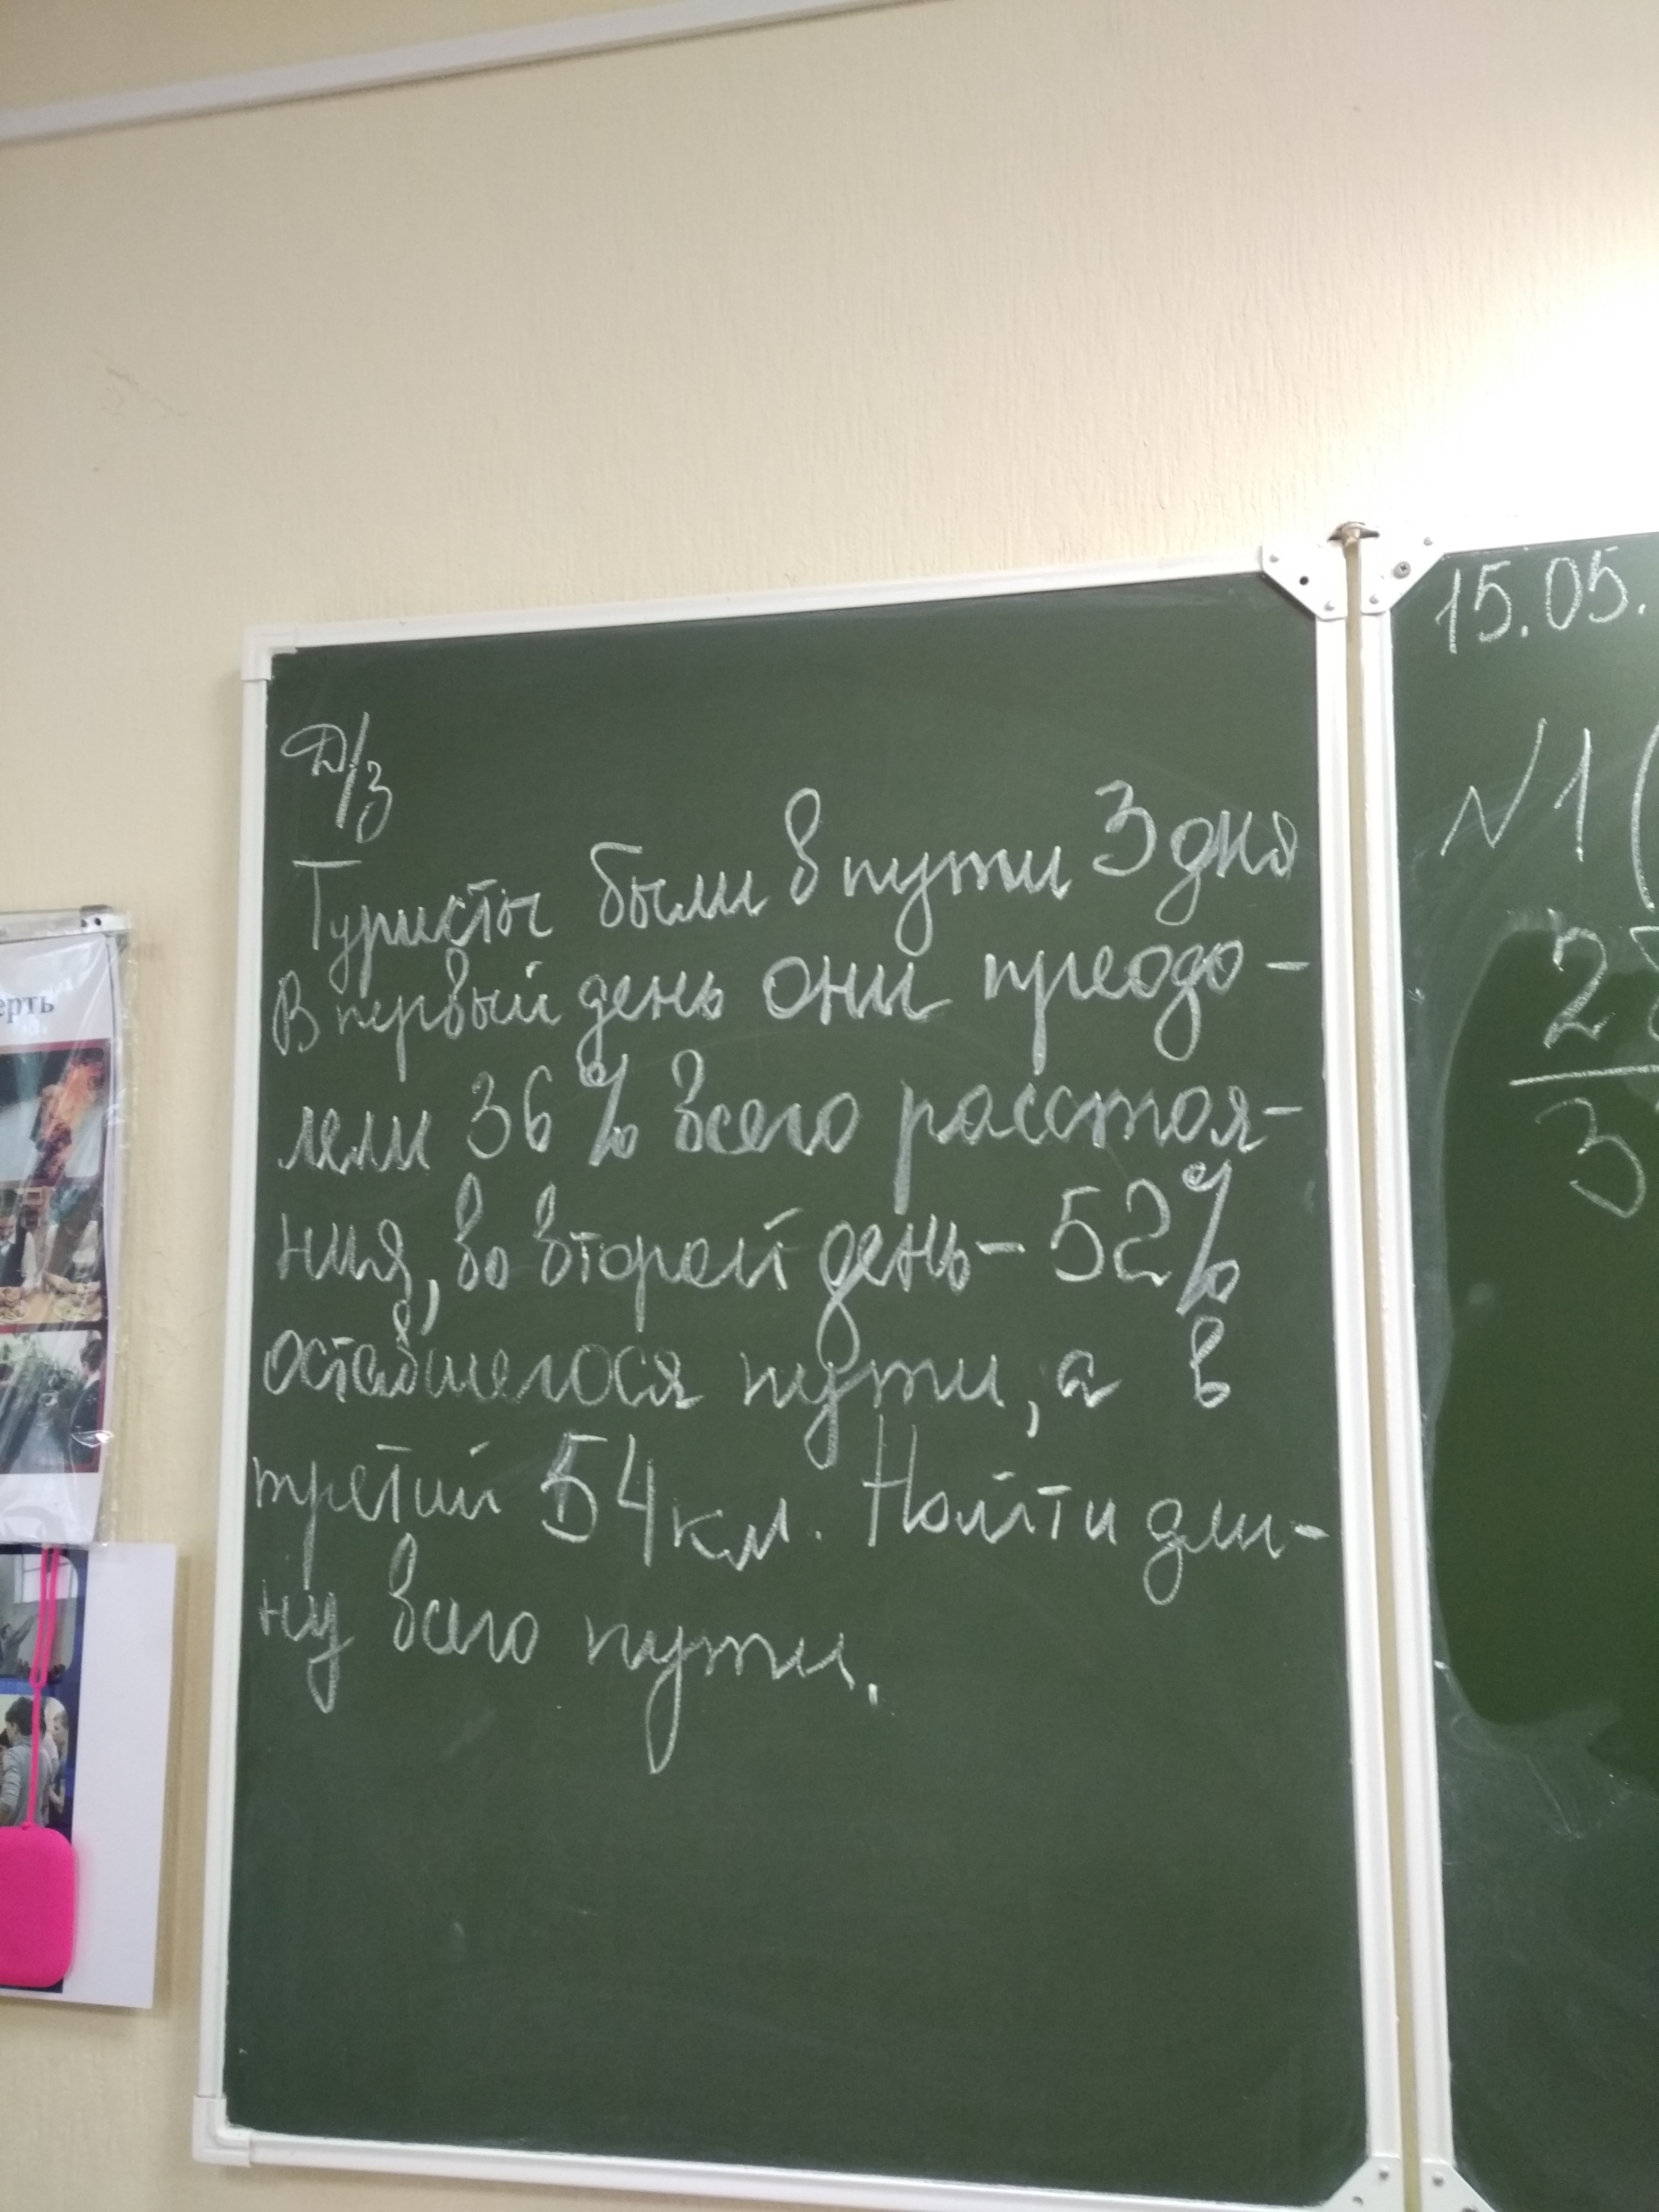 Д/з
Туристы были в пути 3 дня
В первый день они преодо-
лели 36% всего расстоя-
ния, во второй день - 52%
оставшегося пути, а в
третий 54км. Найти дли-
ну всего пути.
15.05.
№1 (
2
3
ерть